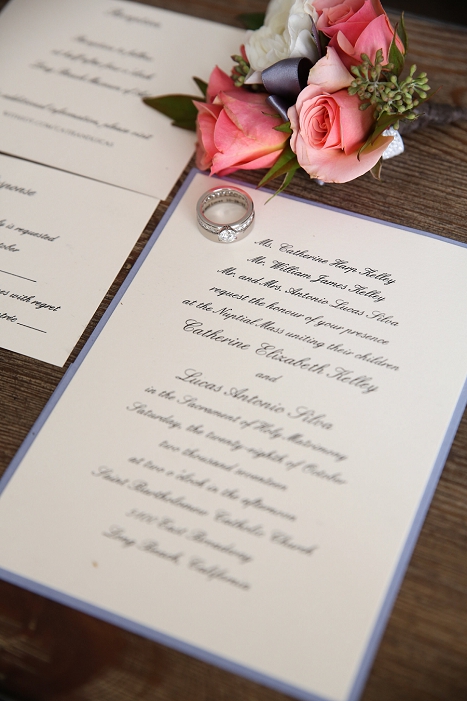 Reception
Reception to follow
Long Beach Museum of Art
additional information, please visit
Response
is requested
October
with regret
Ms. Catherine Harp Kelley
Mr. William James Kelley
Mr. and Mrs. Antonio Lucas Silva
request the honour of your presence
at the Nuptial Mass uniting their children
Catherine Elizabeth Kelley
and
Lucas Antonio Silva
in the Sacrament of Holy Matrimony
Saturday, the twenty-eighth of October
two thousand seventeen
at two o'clock in the afternoon
Saint Bartholomew Catholic Church
East Broadway
Long Beach, California